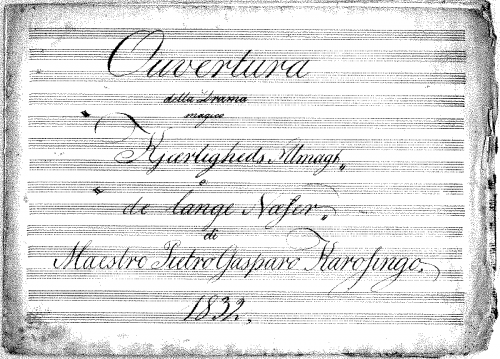 Ouvertura
della Drama
magico
"Kjærligheds Almagt"
o
"de lange Næser"
di
Maestro Pietro Gasparo Karosingo.
1832.